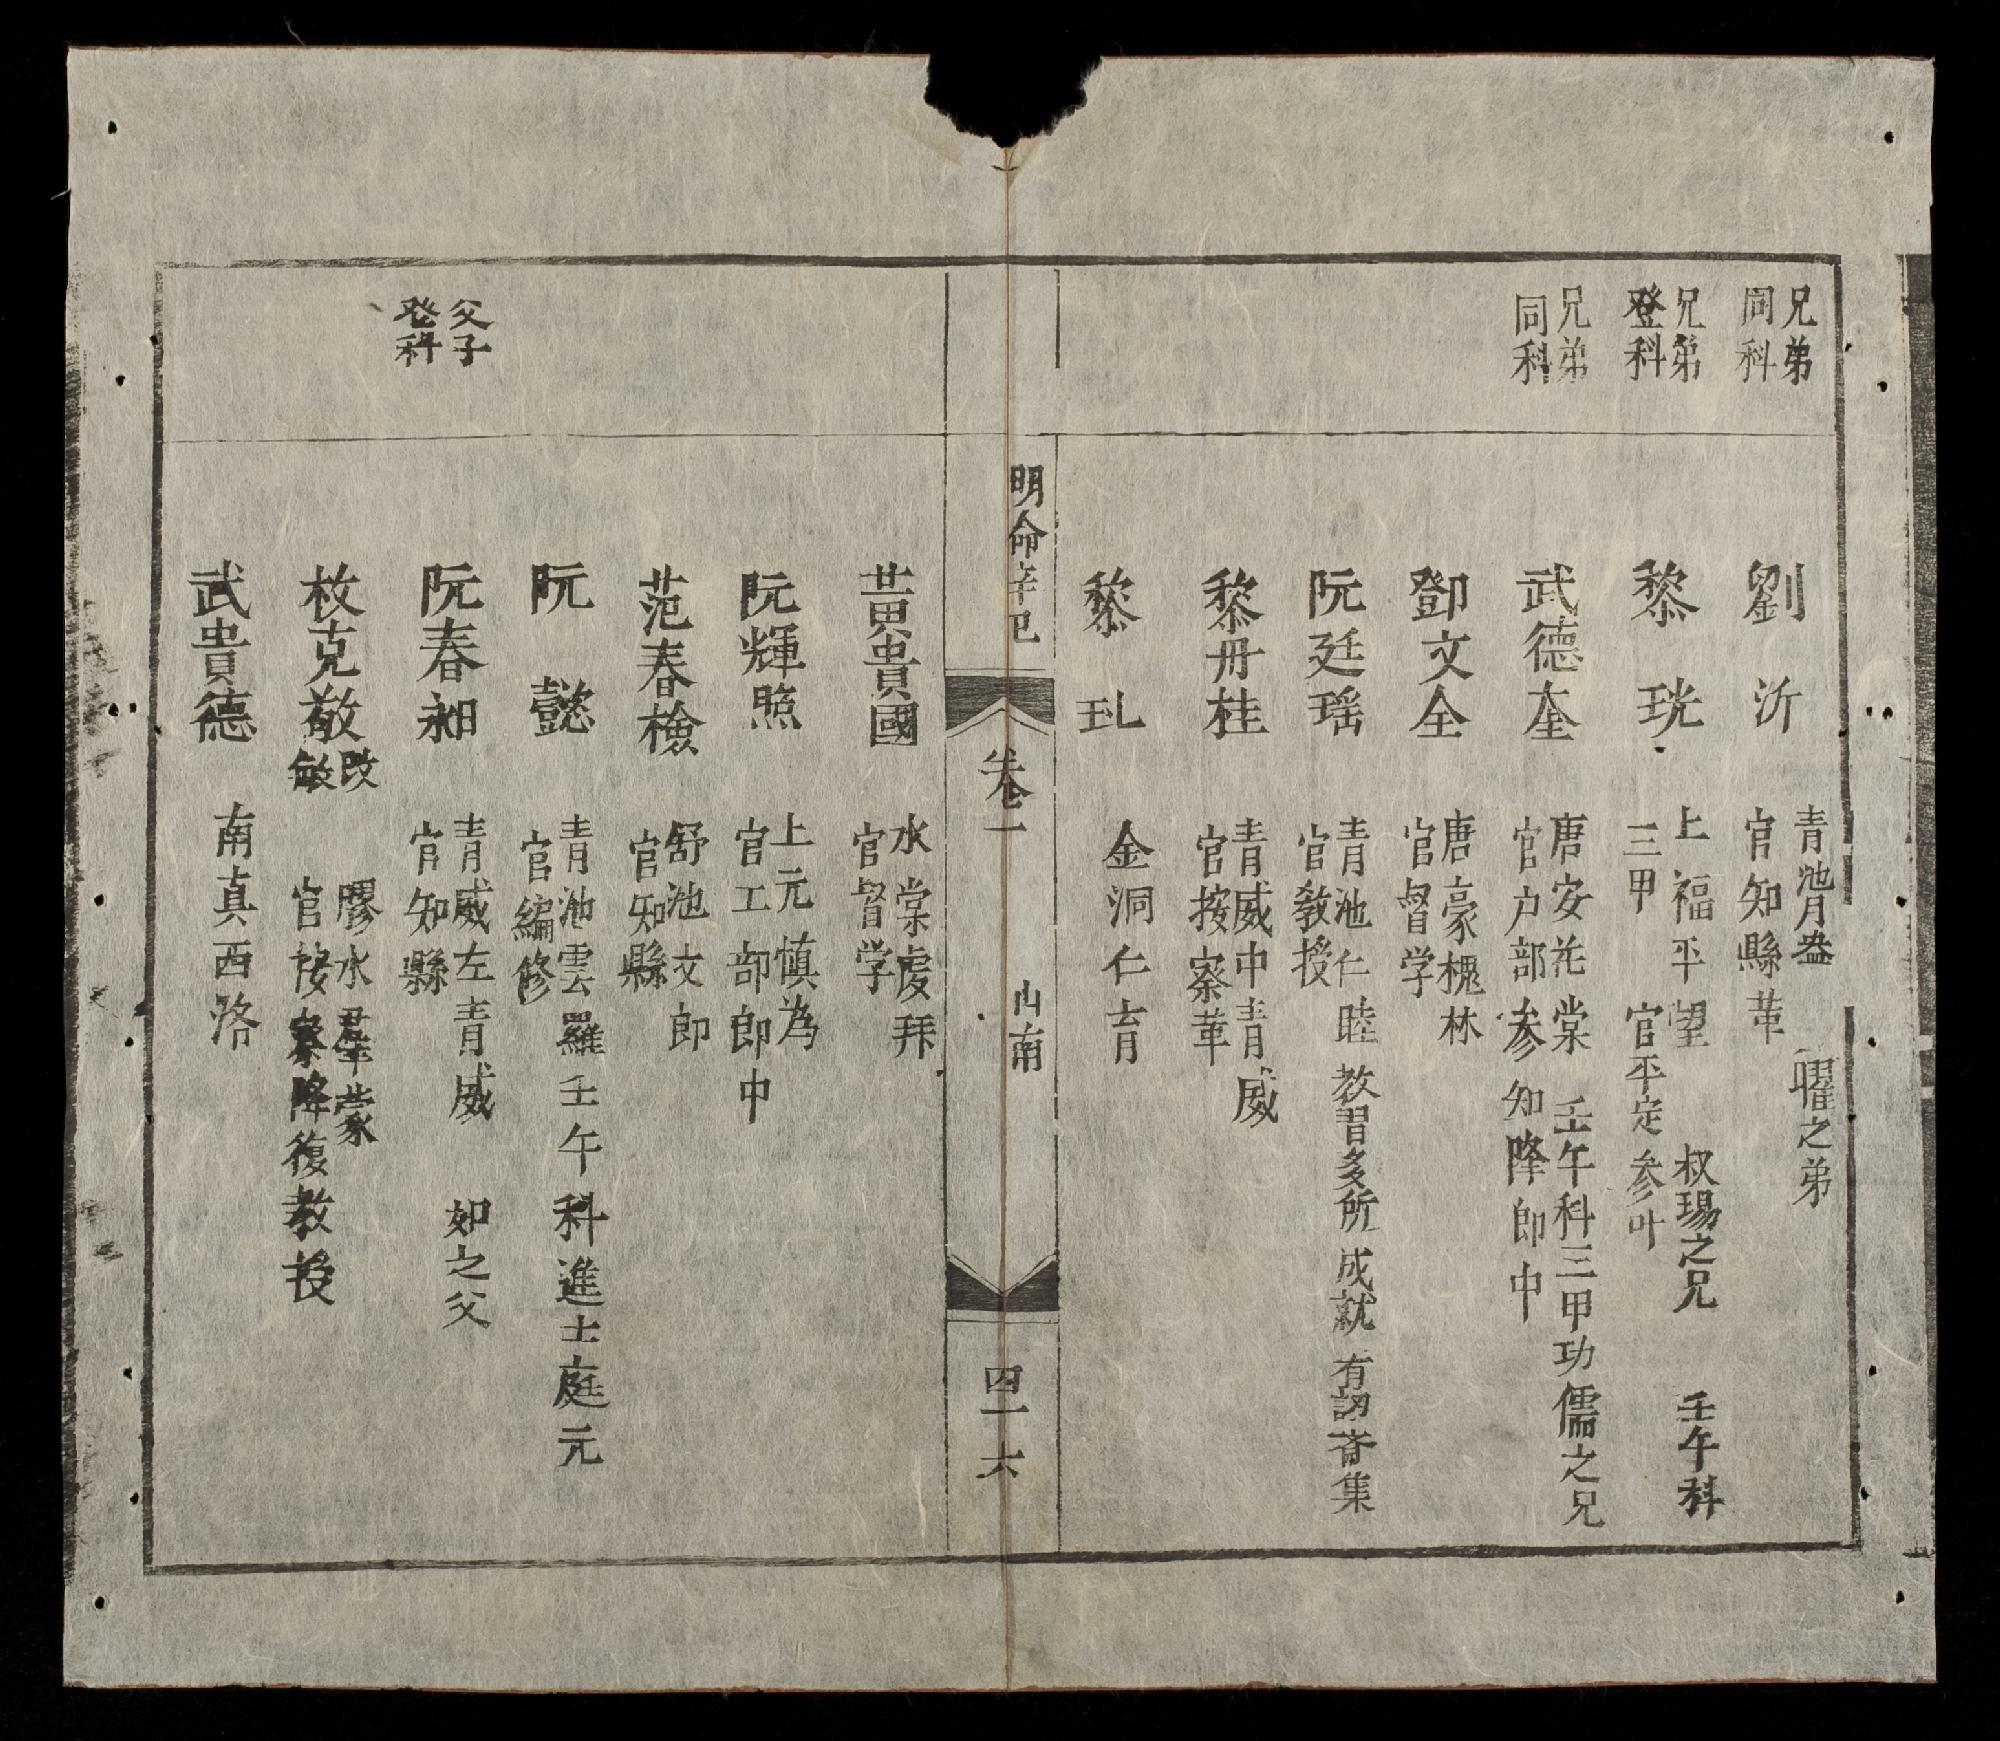 兄弟
同科
劉沂
青池月盎
官知縣革
曜之弟
兄弟
登科
黎珖
上福平望
三甲
叔瑒之兄
官平定参叶
壬午科
兄弟
同科
武德奎
唐安花棠
官户部参知降郎中
壬午科三甲功儒之兄
鄧文全
唐豪槐林
官督学
阮廷瑶
青池仁睦
官教授
教習多所成就有訒斎集
黎丹桂
青威中青威
官按察革
黎玌
金洞仁育
明命辛巳
卷一
山南
四十六
黃貴國
水棠虔拜
官督学
阮輝照
上元慎为
官工部郎中
范春檢
舒池文郎
官知縣
阮懿
青池雲羅
官編修
壬午科進士庭元
父子
登科
阮春昶
青威左青威
官知縣
如之父
枚克敬
改敏
膠水羣蒙
官按察降復教授
武貴德
南真西洛